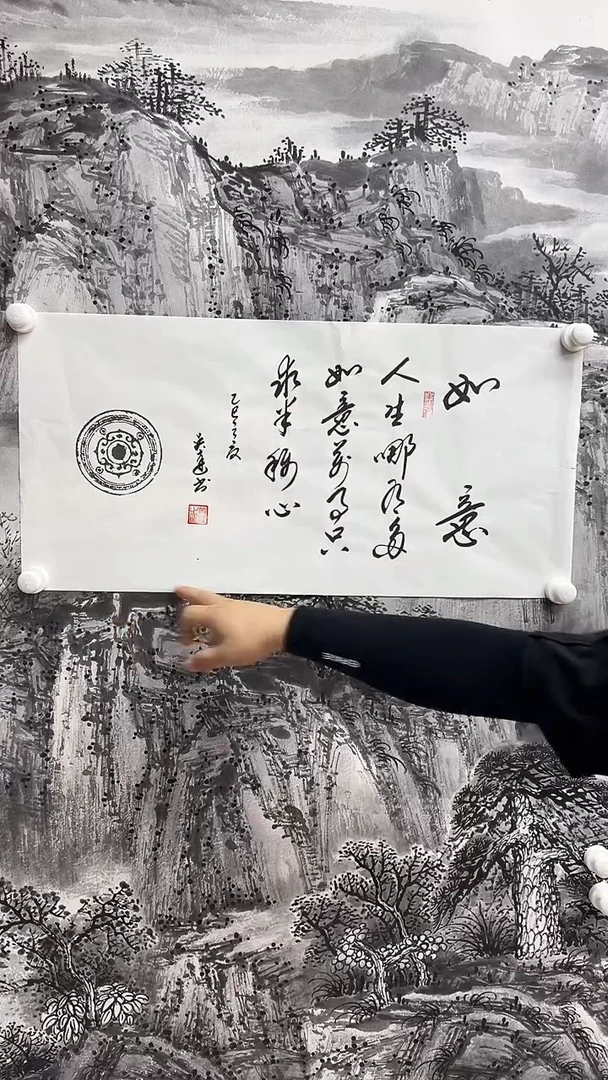 如意
人生哪有多
如意萬事只
求半称心
乙巳之夏
书